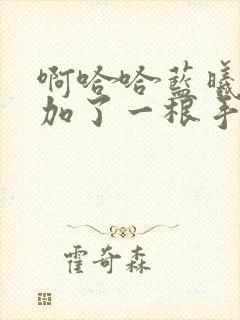 啊哈哈蓝曦
加了一根手
霍奇森